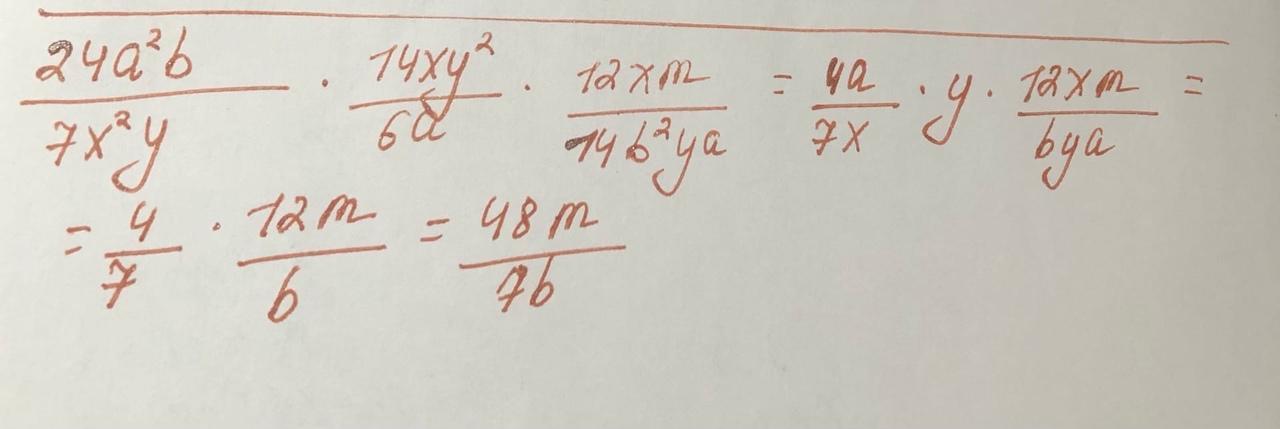 24a²b/7x²y · 14xy²/6a · 12xm/14b²ya = 4a/7x · y · 12xm/bya =
= 4/7 · 12m/b = 48m/7b